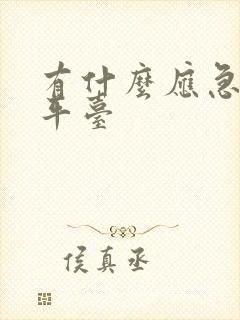 有什麼應急
平臺
侯真丞